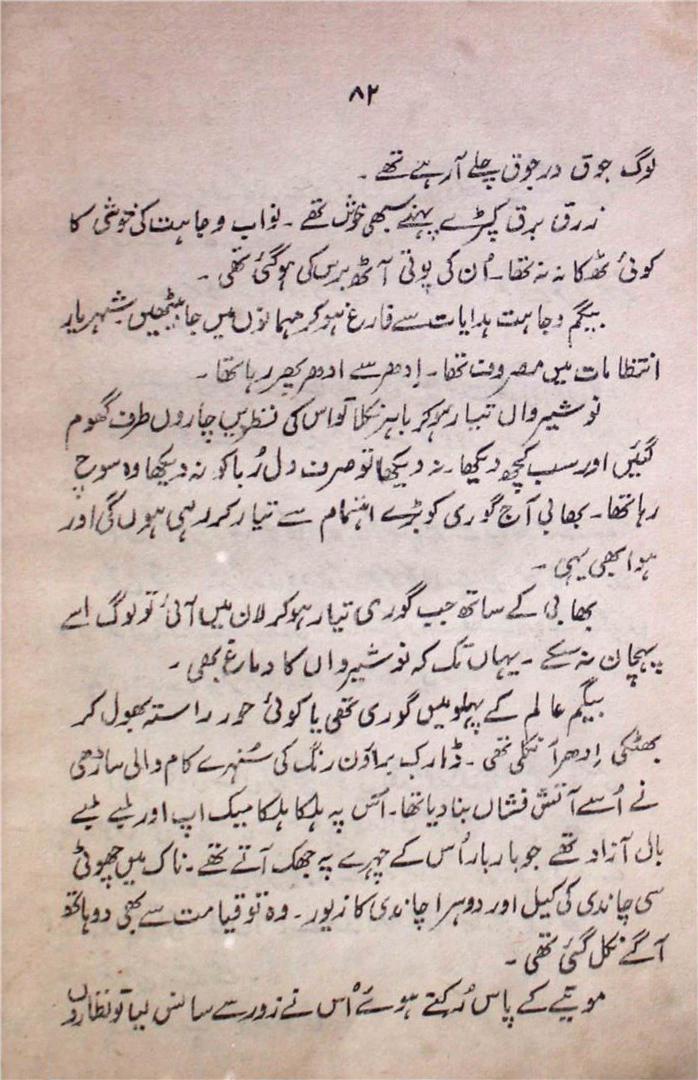 ۸۲
لوگ جوق در جوق چلے آ رہے تھے ۔
زرق برق کپڑے پہنے سبھی خوش تھے ۔ نواب وجاہت کی خوشی کا
کوئی ٹھکانہ نہ تھا۔ اُن کی پوتی آٹھ برس کی ہو گئی تھی ۔
بیگم وجاہت ہدایات سے فارغ ہو کر مہمانوں میں جا بیٹھیں۔ شہریار
انتظامات میں مصروف تھا۔ اِدھر سے ادھر پھر رہا تھا ۔
نوشیرواں تیار ہو کر باہر نکلا تو اس کی نظریں چاروں طرف گھوم
گئیں اور سب کچھ دیکھا۔ نہ دیکھا تو صرف دل رُبا کو نہ دیکھا وہ سوچ
رہا تھا۔ بھابی آج گوری کو بڑے اہتمام سے تیار کر رہی ہوں گی اور
ہوا بھی یہی ۔
بھابی کے ساتھ جب گوری تیار ہو کر لان میں آئی تو لوگ اسے
پہچان نہ سکے ۔ یہاں تک کہ نوشیرواں کا دماغ بھی ۔
بیگم عالم کے پہلو میں گوری تھی یا کوئی حور راستہ بھول کر
بھٹکی اِدھر آ نکلی تھی ۔ ڈارک براؤن رنگ کی سُنہرے کام والی ساڑھی
نے اُسے آتش فشاں بنا دیا تھا۔ اس پہ ہلکا ہلکا میک اپ اور لمبے لمبے
بال آزاد تھے جو بار بار اُس کے چہرے پہ جھک آتے تھے ۔ ناک میں چھوٹی
سی چاندی کی کیل اور دوہرا چاندی کا زیور ۔ وہ تو قیامت سے بھی دو ہاتھ
آگے نکل گئی تھی ۔
موتیے کے پاس رُکتے ہوئے اُس نے زور سے سانس لیا تو نظاروں